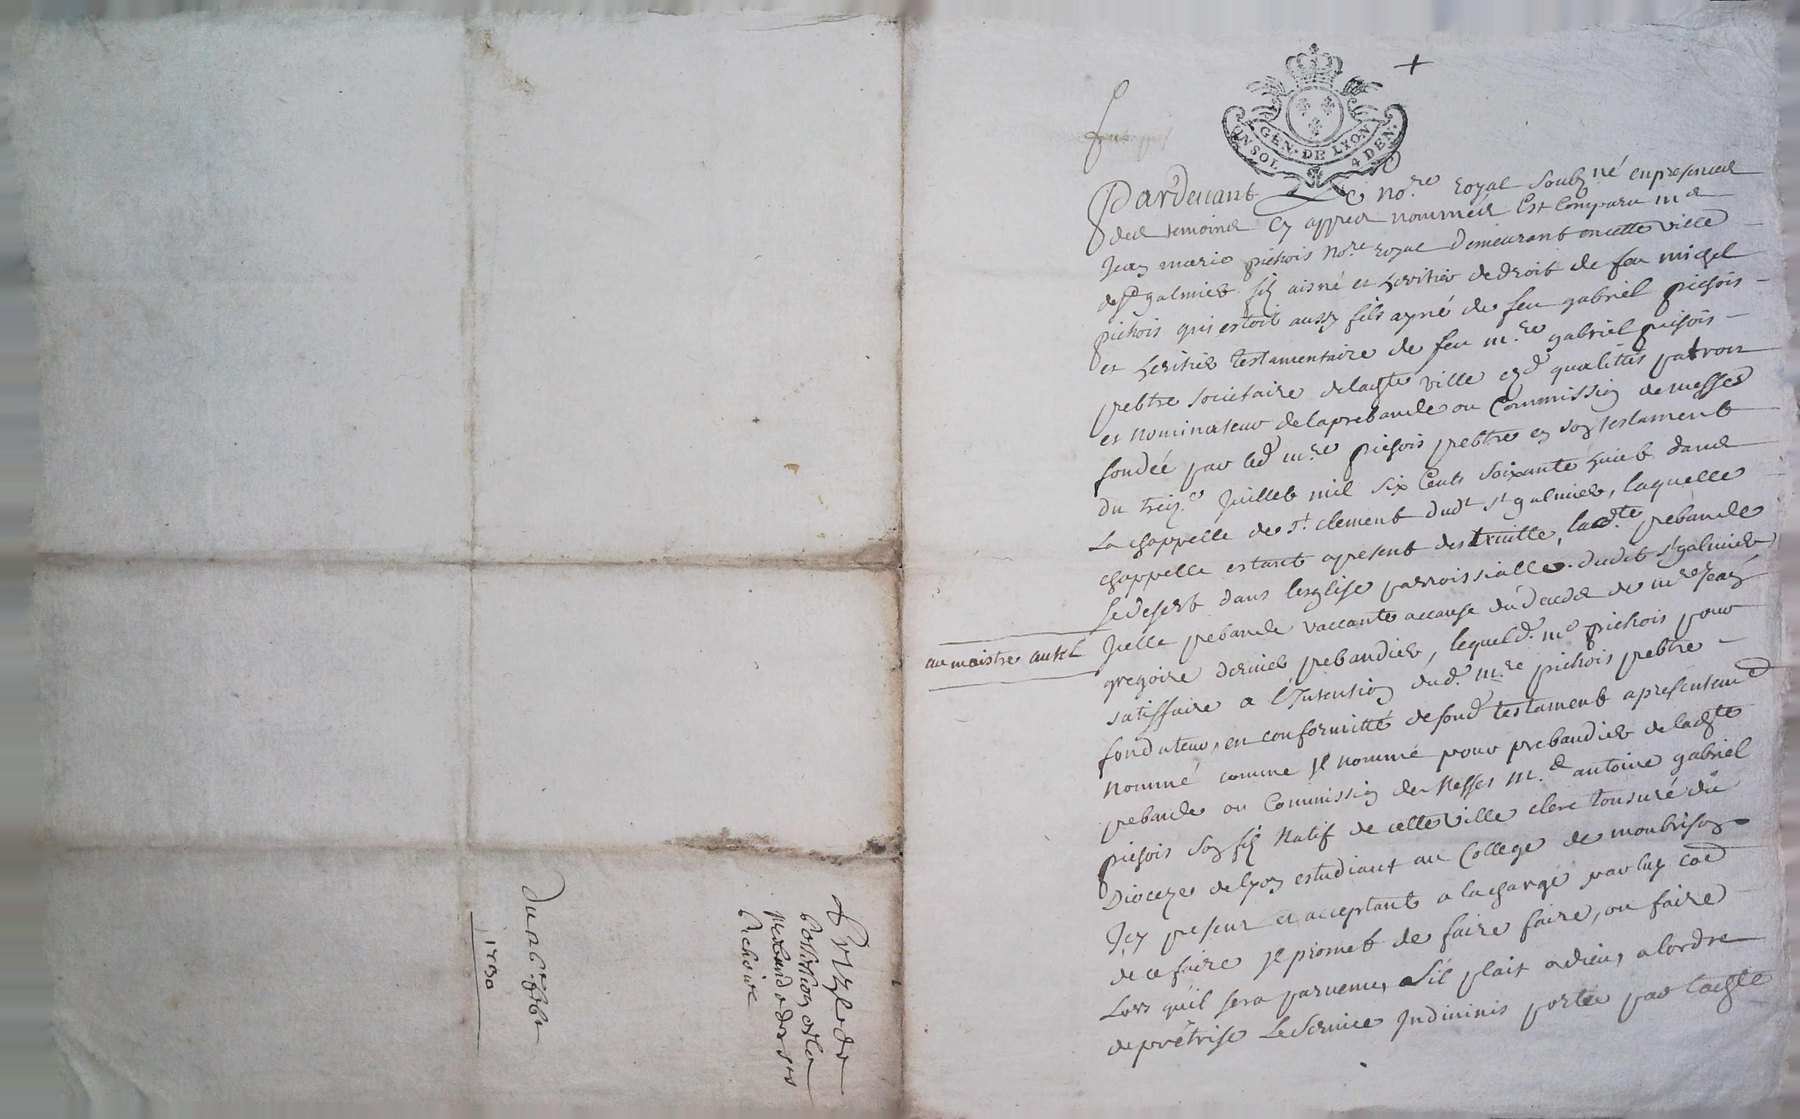 GEN. DE LYON
UN SOL 4 DEN.
Pardevant Le no.re royal soubz.né en presence
des temoins cy appres nommes Est Comparu m.e
Jean marie pichois No.re royal demeurant en cette ville
de st galmier fils aisné et heritier de droit de feu michel
pichois qui estoit aussy fils ayné de feu gabriel pichois
et heritier testamentaire de feu m.re gabriel pichois
prebtre societaire de lad.te ville es d. qualités patron
et nominateur de la prebande ou Commission de messes
fondée par led. m.re pichois prebtre en son testament
du treiz.e Juillet mil six Cents soixante huict dans
La chappelle de st. clement dud.t st galmier, laquelle
chappelle estant apresent destruitte, la d.te prebande
se desert dans l'esglise parroissialle dudit st galmier
au maistre autel
Icelle prebande vaccante accause du deceds de m.re Jean
gregoire dernier prebandier, lequel d. m.e pichois pour
satisfaire a l'Intention dud. m.re pichois prebtre
fondateur, en conformitté de son d. testament a presentem.t
nommé comme Il nomme pour prebandier de lad.te
prebande ou Commission de Messes M.e antoine gabriel
pichois son fils Natif de cette ville clerc tonsuré du
Dioceze de lyon estudiant au College de montbrison
Icy present et acceptant a la charge par luy
de ce faire Il promet de faire faire, ou faire
Lors qu'il sera parvenu, s'il plait a dieu, a l'ordre
de prêtrise Le Service Indivinis porté par lad.te
prize de
possession de la
prebande des
Pichois
Du 12 6
1730